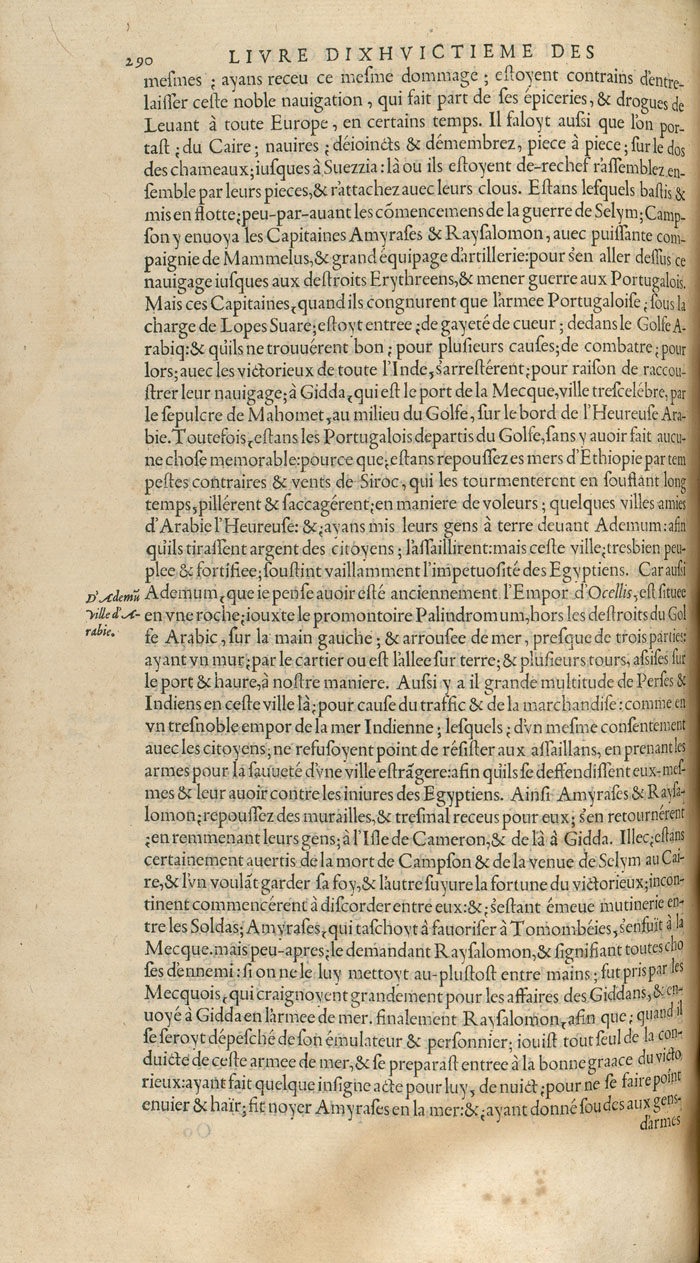 290 LIVRE DIXHVICTIEME DES
meſmes ; ayans receu ce meſme dommage ; eſtoyent contrains d'entre-
laiſſer ceſte noble nauigation , qui fait part de ſes épiceries, & drogues de
Leuant à toute Europe , en certains temps. Il faloyt auſsi que l'on por-
taſt ; du Caire ; nauires ; déioincts & démembrez, piece à piece ; ſur le dos
des chameaux; iuſques à Suezzia : là ou ils eſtoyent de-rechef r'aſſemblez en-
ſemble par leurs pieces, & r'attachez auec leurs clous. Eſtans leſquels baſtis &
mis en flotte; peu-par-auant les cõmencemens de la guerre de Selym; Camp-
ſon y enuoya les Capitaines Amyraſes & Rayſalomon, auec puiſſante com-
paignie de Mammelus, & grand équipage d'artillerie: pour s'en aller deſſus ce
nauigage iuſques aux deſtroits Erythreens, & mener guerre aux Portugalois.
Mais ces Capitaines, quand ils congnurent que l'armee Portugaloiſe ; ſous la
charge de Lopes Suare; eſtoyt entree ; de gayeté de cueur ; dedans le Golfe A-
rabiq: & qu'ils ne trouuérent bon ; pour pluſieurs cauſes; de combatre; pour
lors; auec les victorieux de toute l'Inde, s'arreſtérent; pour raiſon de raccou-
ſtrer leur nauigage; à Gidda, qui eſt le port de la Mecque, ville treſcelébre, par
le ſepulcre de Mahomet, au milieu du Golfe, ſur le bord de l'Heureuſe Ara-
bie. Toutefois, eſtans les Portugalois departis du Golfe, ſans y auoir fait aucu-
ne choſe memorable: pource que; eſtans repouſſez es mers d'Ethiopie par tem
peſtes contraires & vents de Siroc, qui les tourmenterent en ſouflant long
temps, pillérent & ſaccagérent; en maniere de voleurs ; quelques villes amies
d'Arabie l'Heureuſe: & ; ayans mis leurs gens à terre deuant Ademum: afin
qu'ils tiraſſent argent des citoyens ; l'aſſaillirent: mais ceſte ville; tresbien peu-
plee & fortifiee; ſouſtint vaillamment l'impetuoſité des Egyptiens. Car auſsi
D'Ademũ
ville d'A-
rabie.
Ademum, que ie penſe auoir eſté anciennement l'Empor d'Ocellis, eſt ſituee
en vne roche; iouxte le promontoire Palindromum, hors les deſtroits du Gol
fe Arabic , ſur la main gauche ; & arrouſee de mer, preſque de trois parties:
ayant vn mur; par le cartier ou eſt l'allee ſur terre; & pluſieurs tours, aſsiſes ſur
le port & haure, à noſtre maniere. Auſsi y a il grande multitude de Perſes &
Indiens en ceſte ville là; pour cauſe du traffic & de la marchandiſe : comme en
vn treſnoble empor de la mer Indienne ; leſquels ; d'vn meſme conſentement
auec les citoyens; ne refuſoyent point de réſiſter aux aſſaillans, en prenant les
armes pour la ſauueté d'vne ville eſtrãgere: afin qu'ils ſe deffendiſſent eux-meſ-
mes & leur auoir contre les iniures des Egyptiens. Ainſi Amyraſes & Rayſa-
lomon; repouſſez des murailles, & treſmal receus pour eux; s'en retournérent
; en remmenant leurs gens; à l'Iſle de Cameron, & de là à Gidda. Illec; eſtans
certainement auertis de la mort de Campſon & de la venue de Selym au Cai-
re, & l'vn voulãt garder ſa foy, & l'autre ſuyure la fortune du victorieux; incon-
tinent commencérent à diſcorder entre eux: & ; s'eſtant émeue mutinerie en-
tre les Soldas; Amyraſes, qui taſchoyt à fauoriſer à Tomombéies, s'enfuit à la
Mecque. mais peu-apres; le demandant Rayſalomon, & ſignifiant toutes cho
ſes d'ennemi : ſi on ne le luy mettoyt au-pluſtoſt entre mains ; fut pris par les
Mecquois, qui craignoyent grandement pour les affaires des Giddans, & en-
uoyé à Gidda en l'armee de mer. finalement Rayſalomon, afin que; quand il
ſe ſeroyt dépeſché de ſon émulateur & perſonnier; iouiſt tout ſeul de la con-
duicte de ceſte armee de mer, & ſe preparaſt entree à la bonne graace du victo
rieux: ayant fait quelque inſigne acte pour luy, de nuict; pour ne ſe faire point
enuier & haïr; fit noyer Amyraſes en la mer: & ; ayant donné ſoudes aux gens-
d'armes